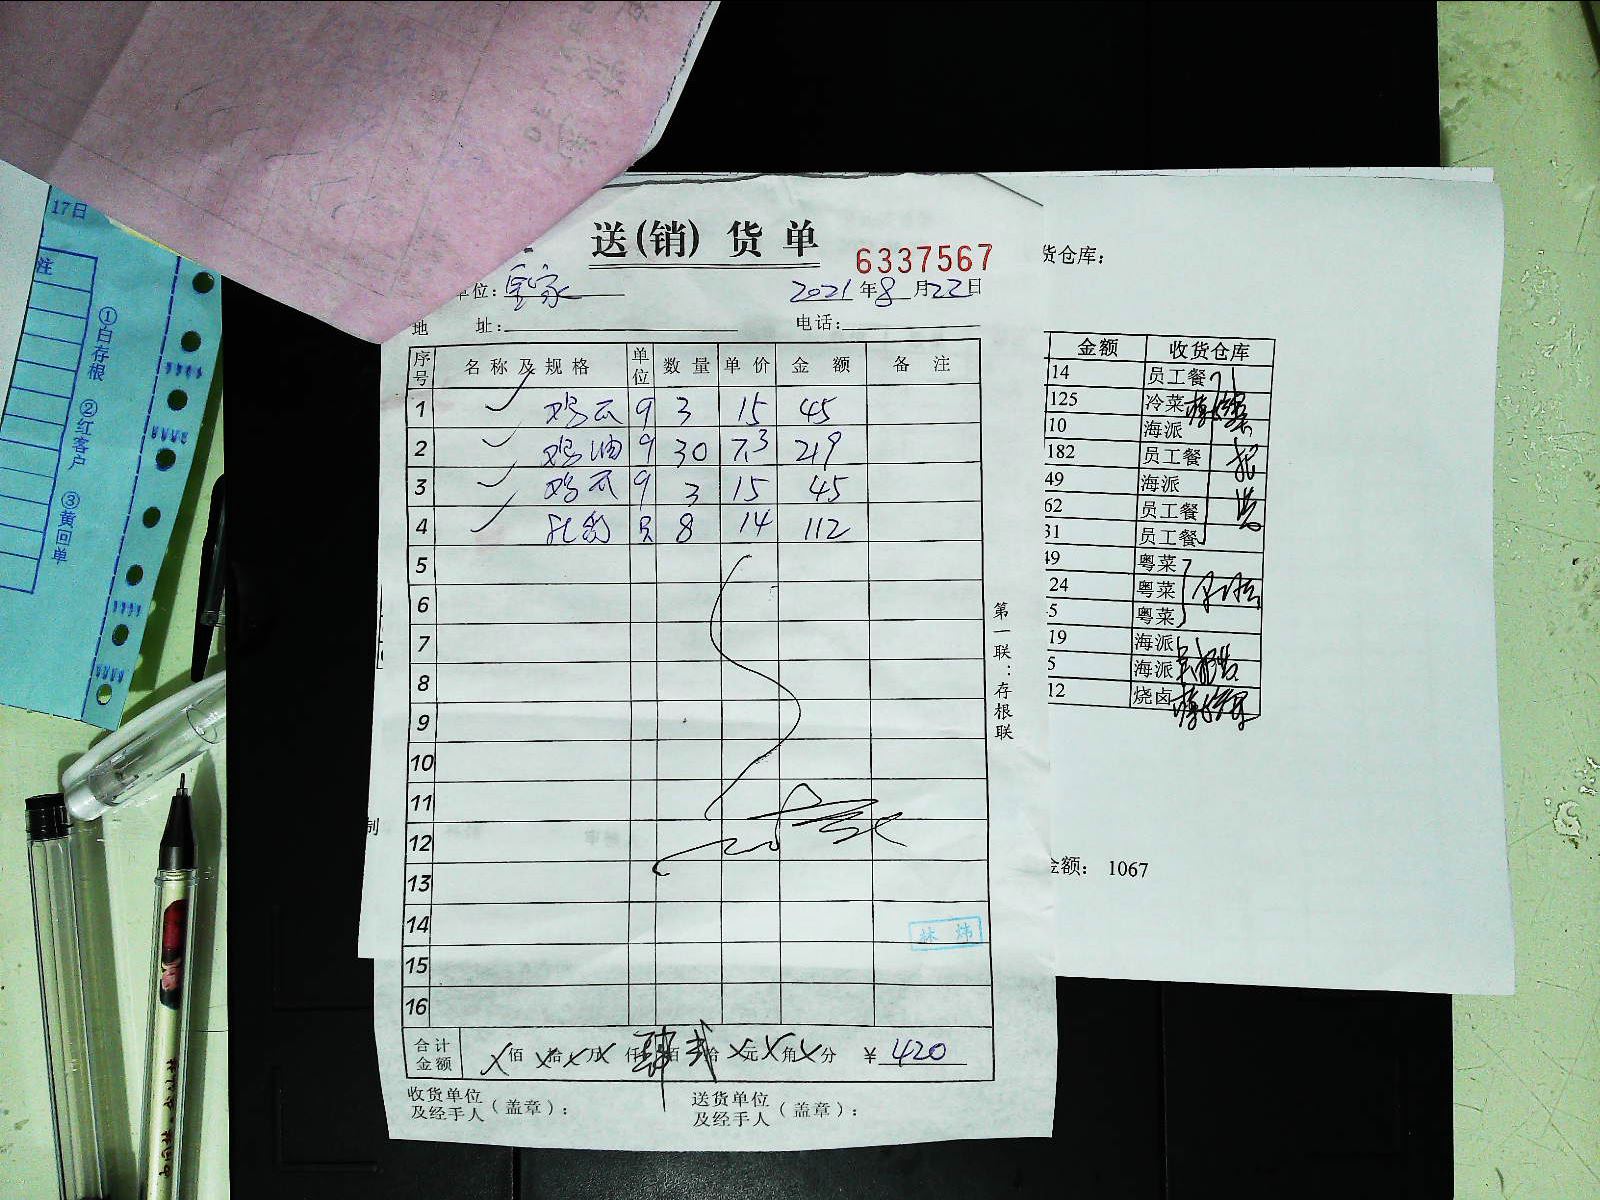 17日
注
①白存根 ②红客户 ③黄回单
送(销)货单
6337567
单位：皇家
2021年8月22日
地 址： 电话：
序号 名称及规格 单位 数量 单价 金额 备注
1 鸡爪 3 15 45
2 鸡油 30 7.3 219
3 鸡爪 3 15 45
4 只 8 14 112
5
6
7
8
9
10
11
12
13
14
15
16
第一联：存根联
林炜
合计金额 X佰X拾X万X仟肆佰贰拾X元X角X分 ¥420
收货单位及经手人（盖章）：
送货单位及经手人（盖章）：
制
货仓库：
金额 收货仓库
14 员工餐
125 冷菜
10 海派
182 员工餐
49 海派
62 员工餐
31 员工餐
49 粤菜
24 粤菜
5 粤菜
19 海派
5 海派
12 烧卤
金额： 1067